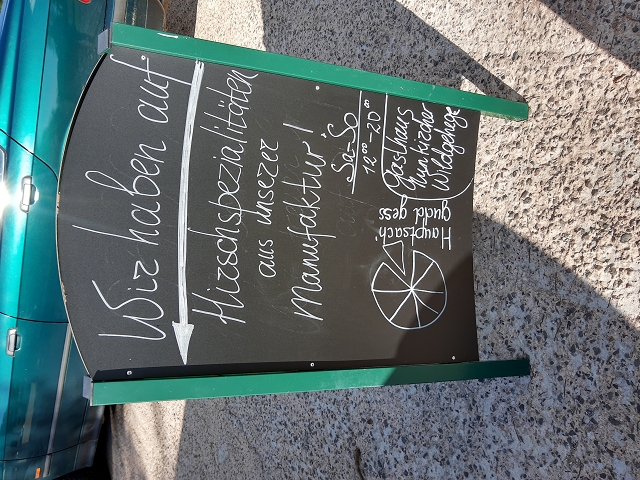 Wir haben auf!
Hirschspezialitäten
aus unserer
Manufaktur!
Sa-So
12⁰⁰-20⁰⁰
Gasthaus
Wildgehege
Hauptsach
gudd gess